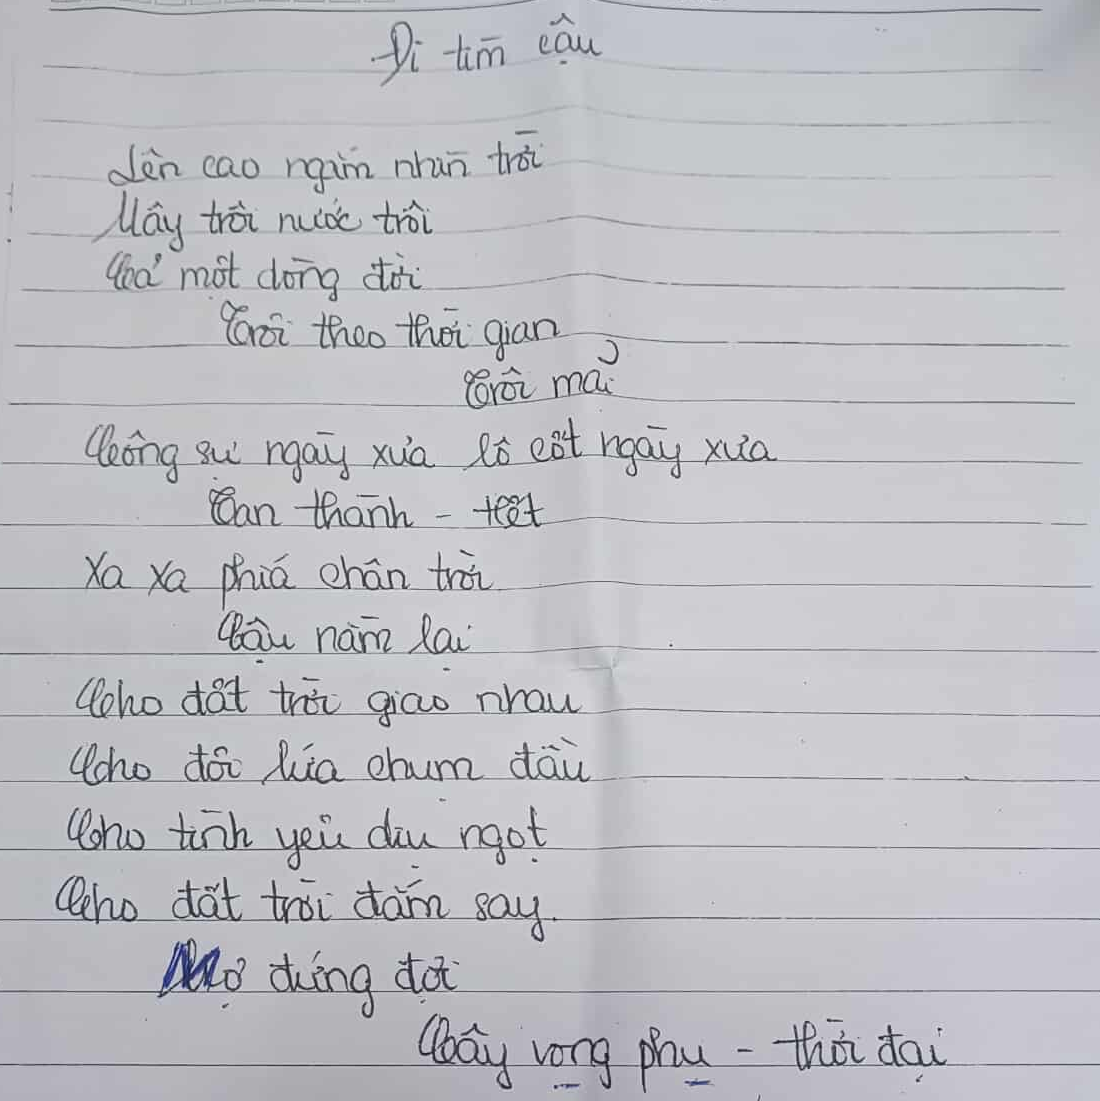 Đi tìm cậu
Lên cao ngắm nhìn trời
Mây trôi nước trôi
Cả một dòng đời
Trôi theo thời gian
Trôi mãi
Công sự ngày xưa lô cốt ngày xưa
Tan thành - hết
Xa xa phía chân trời
Cậu nằm lại
Cho đất trời giao nhau
Cho đôi lứa chụm đầu
Cho tình yêu dịu ngọt
Cho đất trời đắm say.
Mợ đứng đợi
Cây vọng phu - thời đại